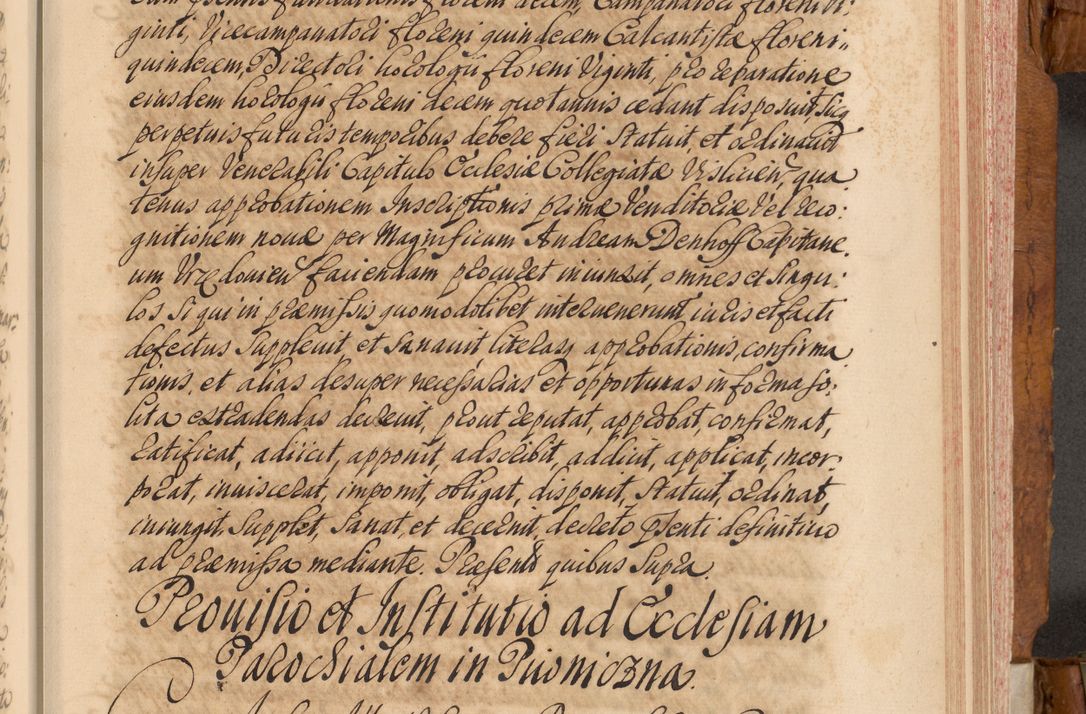 ginti, Vicecampanatori floreni quindecem Calcantistæ floreni
quindecem, Directori horologii floreni Viginti, pro reparatione
eiusdem horologii floreni decem quotannis cedant disposuit, sicq
perpetuis futuris temporibus debere fieri statuit et ordinavit
insuper Venerabili Capitulo Ecclesiæ Collegiatæ Vislicien, qua
tenus approbationem Inscriptionis primæ Venditoriæ Vel reco:
gnitionem novæ per Magnificum Andream Denhoff Capitane.
um Vrzędovien faciendam procuret iniunxit, omnes et singu:
los si qui in præmissis quomodolibet intervenerunt iuris et facti
defectus supplevit et sanavit literasq approbationis, confirma
tionis, et alias desuper necessarias et opportunas in forma so:
lita extradendas decrevit, prout reputat, approbat, confirmat,
ratificat, adiicit, apponit, adscribit, addicit, applicat, incor
porat, inviscerat, imponit, obligat, disponit, statuit, ordinat,
iniungit, supplet, sanat, et decernit, decreto psenti definitivo
ad præmissa mediante. Præsentib quibus supra.
Provisio et Institutio ad Ecclesiam
Parochialem in Pivoniczna.